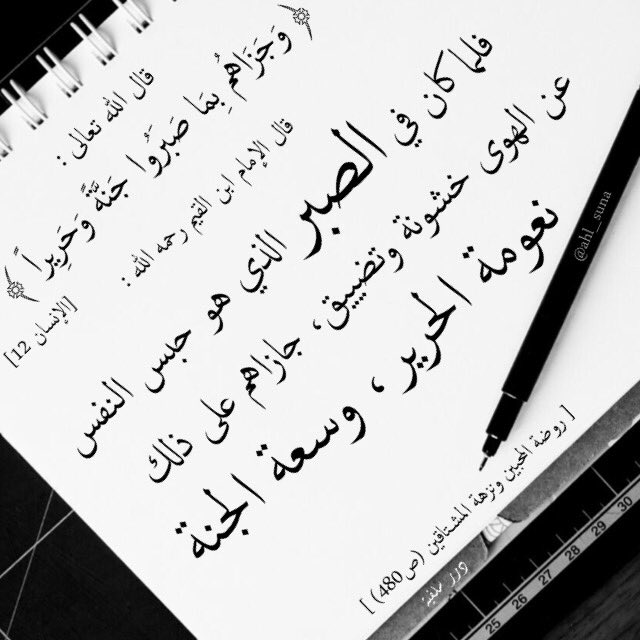 قال الله تعالى :
وَجَزَاهُم بِمَا صَبَرُوا جَنَّةً وَحَرِيرًا
[الإنسان 12]
قال الإمام ابن القيم رحمه الله :
فلما كان في الصبر الذي هو حبس النفس
عن الهوى خشونة وتضييق، جازاهم على ذلك
نعومة الحرير، وسعة الجنة
[روضة المحبين ونزهة المشتاقين (ص 480)]
@ahl_suna